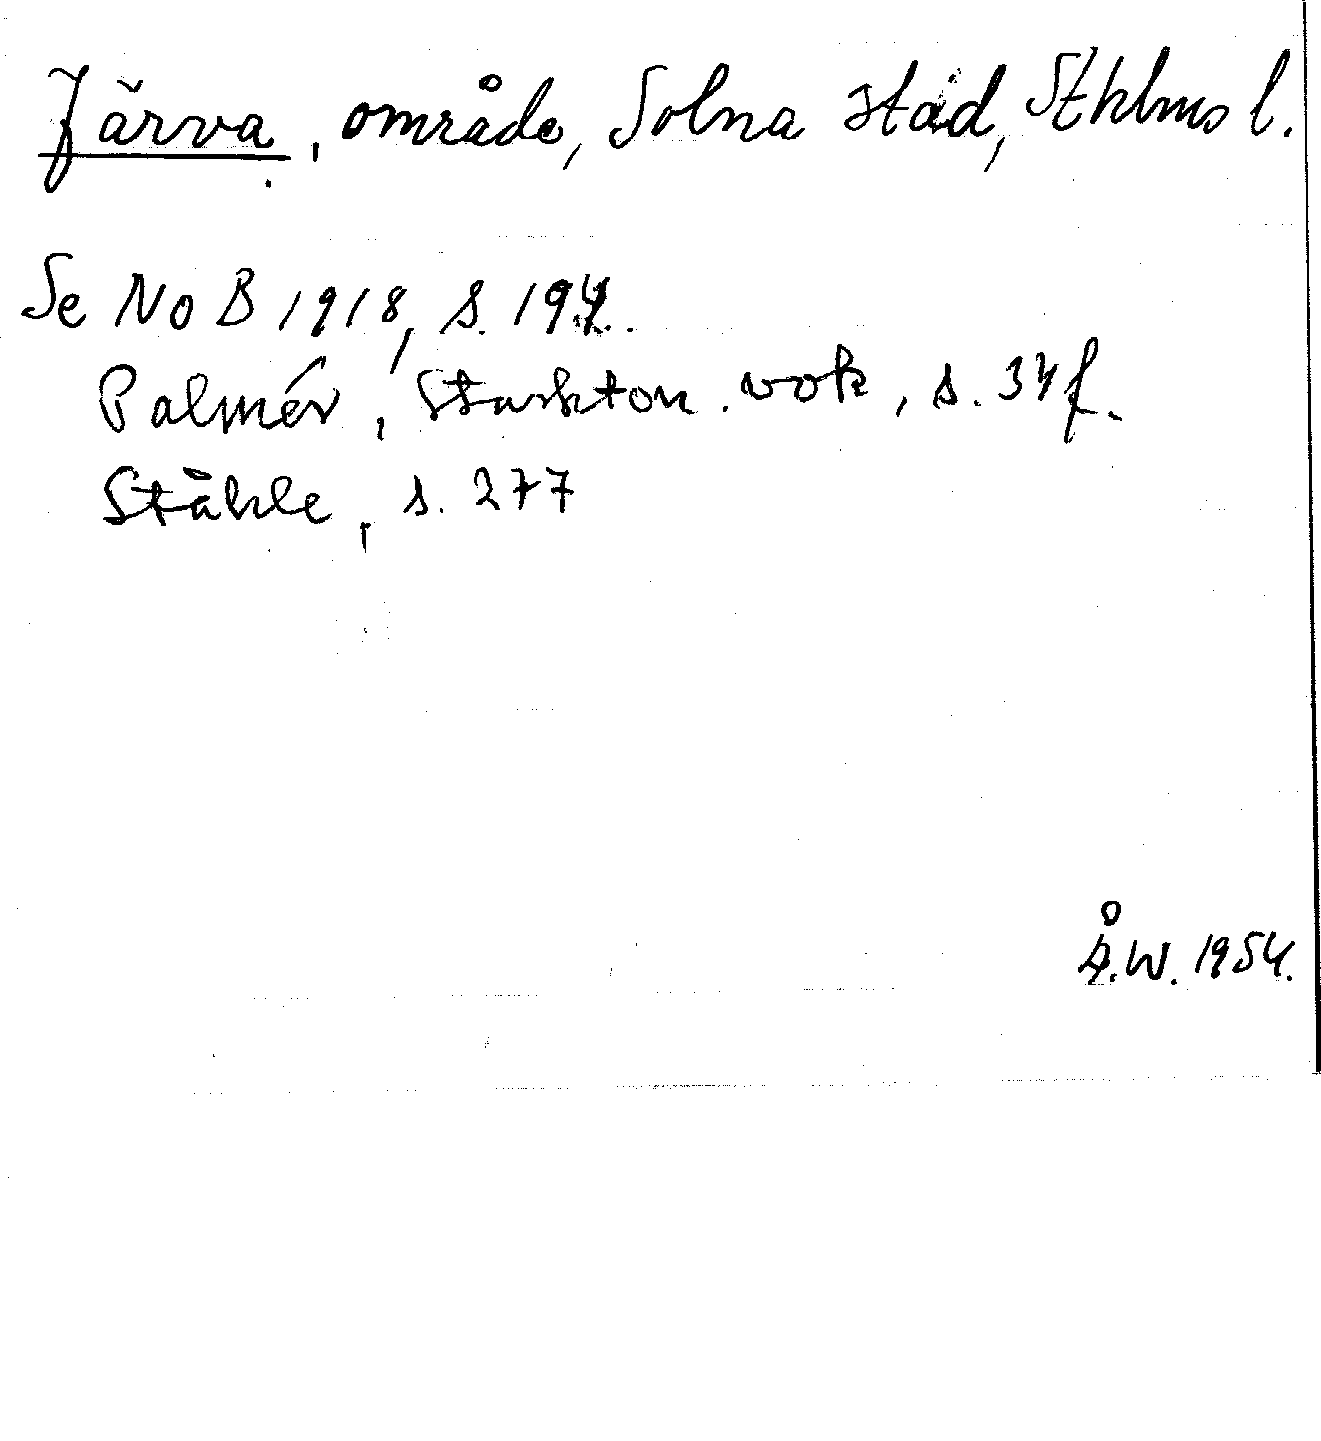 Järva, område, Solna stad, Sthlms l.
Se NoB 1918, s. 194.
Palmér, Starkton. vok, s. 34 f.
Ståhle, s. 277
Å.W. 1954.